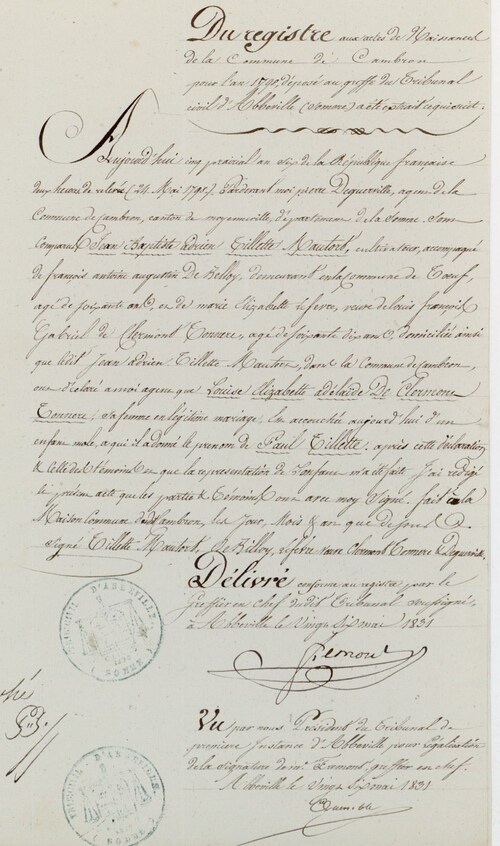 Du registre aux actes de Naissances
de la Commune de Cambron
pour l'an 1798, déposé au greffe du Tribunal
civil d'Abbeville (Somme) a été extrait ce qui suit.
Aujourd'hui cinq prairial an six de la République française
deux heures de relevé (24 Mai 1798) Pardevant moi pierre Dequevauviller, agent de la
Commune de Cambron, canton de moyenneville, département de la Somme. Sont
Comparus Jean Baptiste adrien Tillette Mautort, cultivateur, accompagné
de françois antoine augustin De Belloy, demeurant en la Commune de
agé de soixante ans, et de marie Elizabette lefevre, veuve de louis françois
Gabriel de Clermont Tonnere, agé de soixante dix ans, domiciliés ainsi
que ledit Jean adrien Tillette Mautort, dans la Commune de Cambron,
ont déclaré a moi agent que Louise Elizabette adélaïde De Clermont
Tonnere, sa femme en légitime mariage, est accouchée aujourd'hui d'un
enfant male, a qui il a donné le prenom de Paul Tillette, après cette déclaration
& celle des témoins et que la représentation de l'enfant m'a été faite J'ai rédigé
le présent acte que les parties & témoins ont avec moy Signé, fait à la
Maison Commune dudit Cambron, les Jour, Mois & an que dessus
Signé Tillette Mautort, De Belloy, lefevre veuve Clermont Tonnere &
Délivré conforme au registre par le
Greffier en chef dudit Tribunal soussigné,
à Abbeville le Vingt Six mai 1831
Vu par nous Président du Tribunal de
première instance d'Abbeville pour légalisation
de la signature de mr. greffier en chef.
Abbeville le Vingt Six mai 1831
TRIB. CIVIL D'ABBEVILLE
(SOMME)
TRIB. CIVIL D'ABBEVILLE
(SOMME)